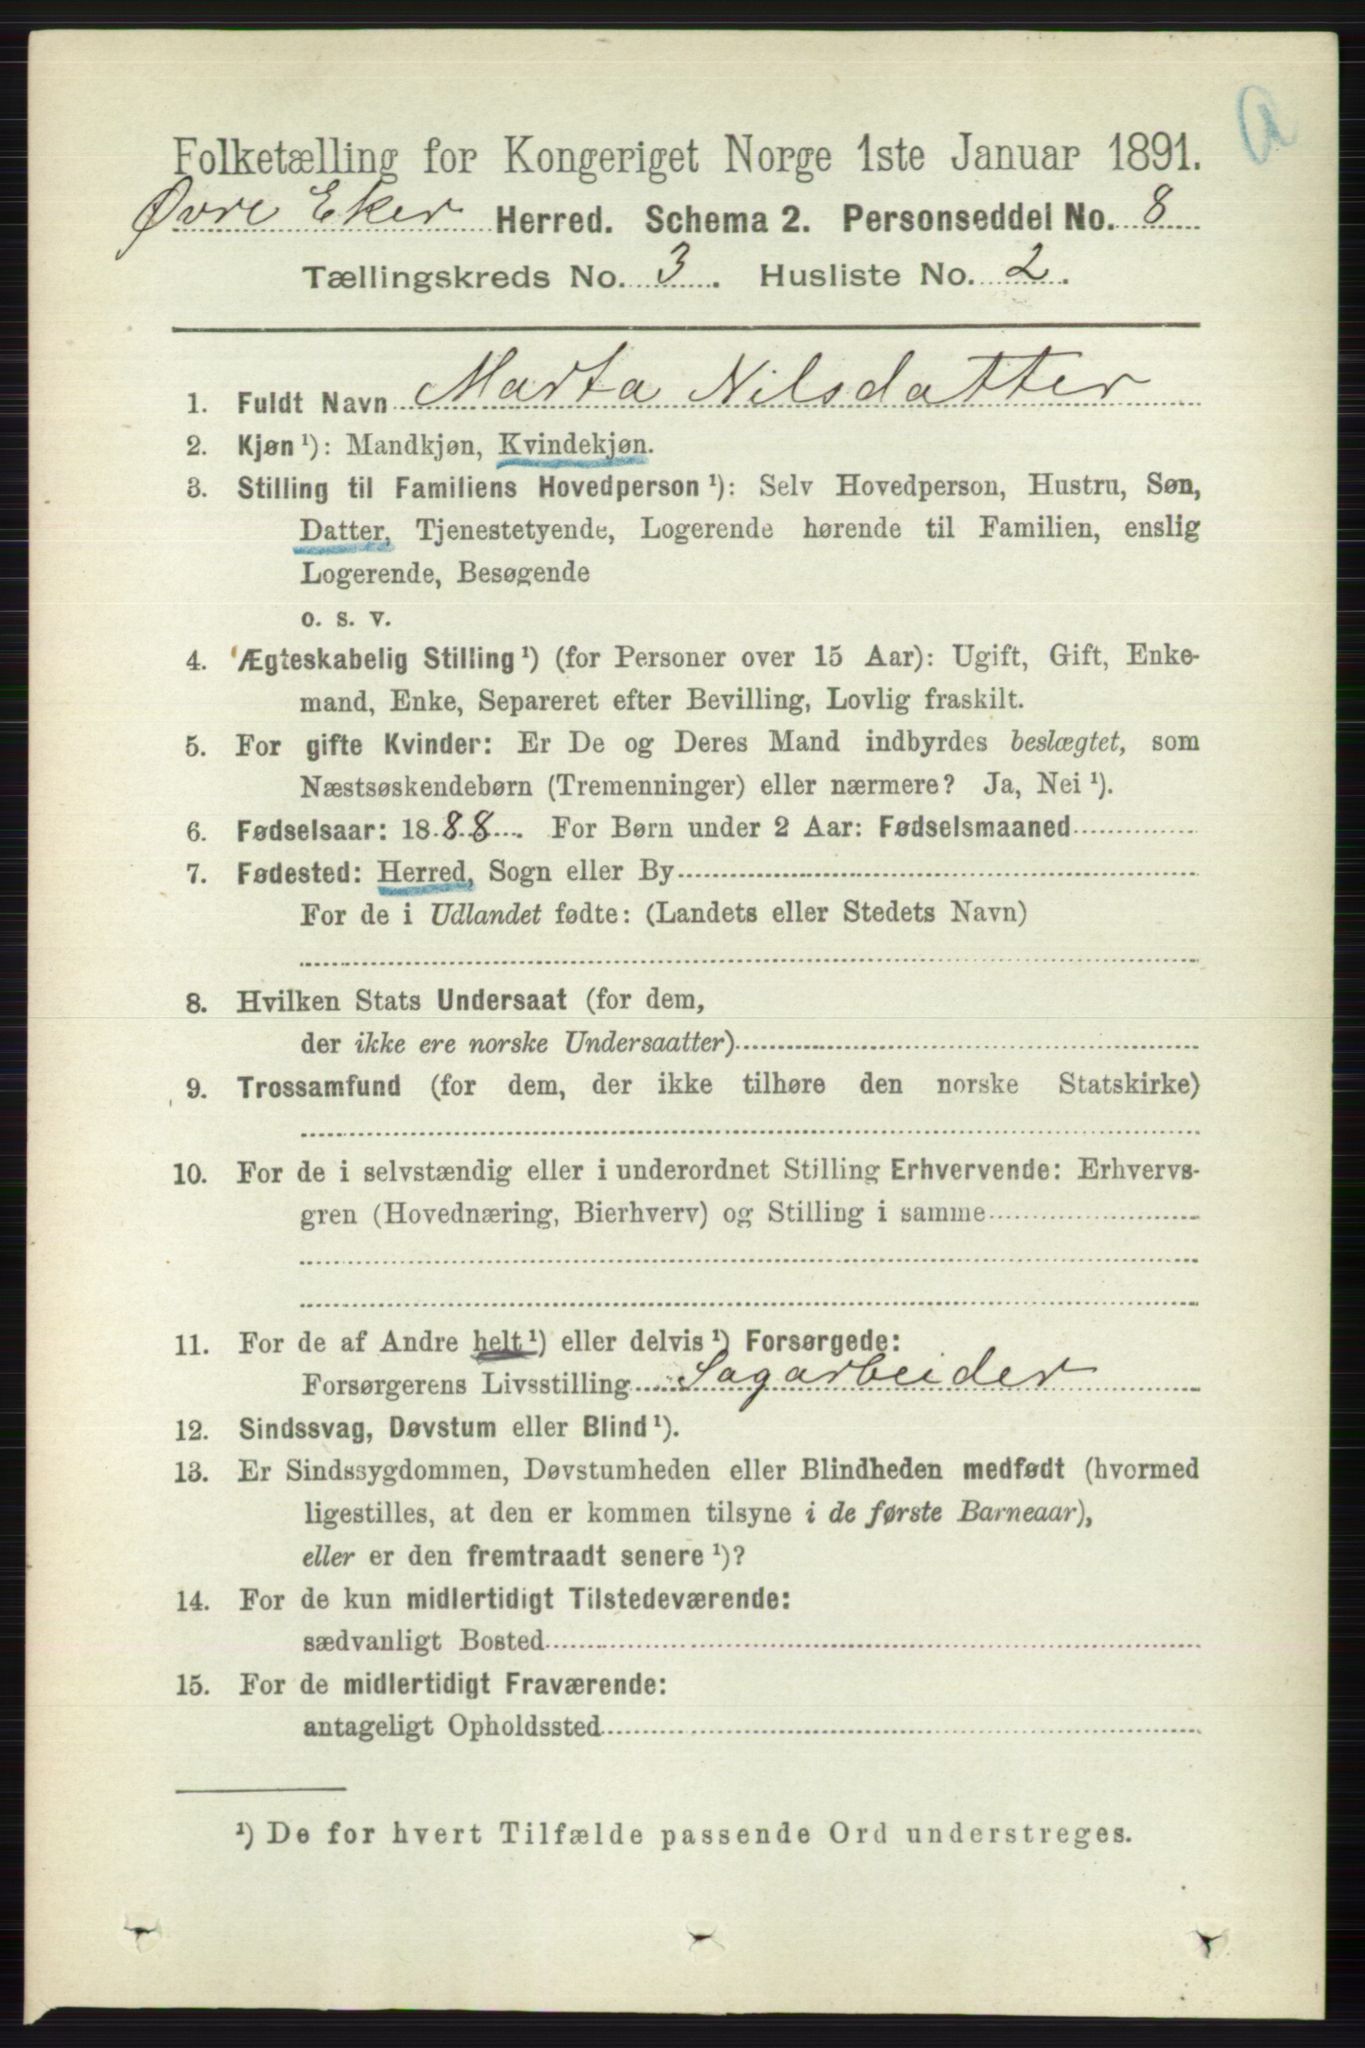 a
Folketælling for Kongeriget Norge 1ste Januar 1891.
Øvre Eker Herred. Schema 2. Personseddel No. 8
Tællingskreds No. 3. Husliste No. 2.
1. Fuldt Navn Marta Nilsdatter
2. Kjøn ¹): Mandkjøn, Kvindekjøn.
3. Stilling til Familiens Hovedperson ¹): Selv Hovedperson, Hustru, Søn,
Datter, Tjenestetyende, Logerende hørende til Familien, enslig
Logerende, Besøgende
o. s. v.
4. Ægteskabelig Stilling ¹) (for Personer over 15 Aar): Ugift, Gift, Enke-
mand, Enke, Separeret efter Bevilling, Lovlig fraskilt.
5. For gifte Kvinder: Er De og Deres Mand indbyrdes beslægtet, som
Næstsøskendebørn (Tremenninger) eller nærmere? Ja, Nei ¹).
6. Fødselsaar: 1888. For Børn under 2 Aar: Fødselsmaaned
7. Fødested: Herred, Sogn eller By
For de i Udlandet fødte: (Landets eller Stedets Navn)
8. Hvilken Stats Undersaat (for dem,
der ikke ere norske Undersaatter)
9. Trossamfund (for dem, der ikke tilhøre den norske Statskirke)
10. For de i selvstændig eller i underordnet Stilling Erhvervende: Erhvervs-
gren (Hovednæring, Bierhverv) og Stilling i samme
11. For de af Andre helt ¹) eller delvis ¹) Forsørgede:
Forsørgerens Livsstilling Sagarbeider
12. Sindssvag, Døvstum eller Blind ¹).
13. Er Sindssygdommen, Døvstumheden eller Blindheden medfødt (hvormed
ligestilles, at den er kommen tilsyne i de første Barneaar),
eller er den fremtraadt senere ¹)?
14. For de kun midlertidigt Tilstedeværende:
sædvanligt Bosted
15. For de midlertidigt Fraværende:
antageligt Opholdssted
¹) De for hvert Tilfælde passende Ord understreges.